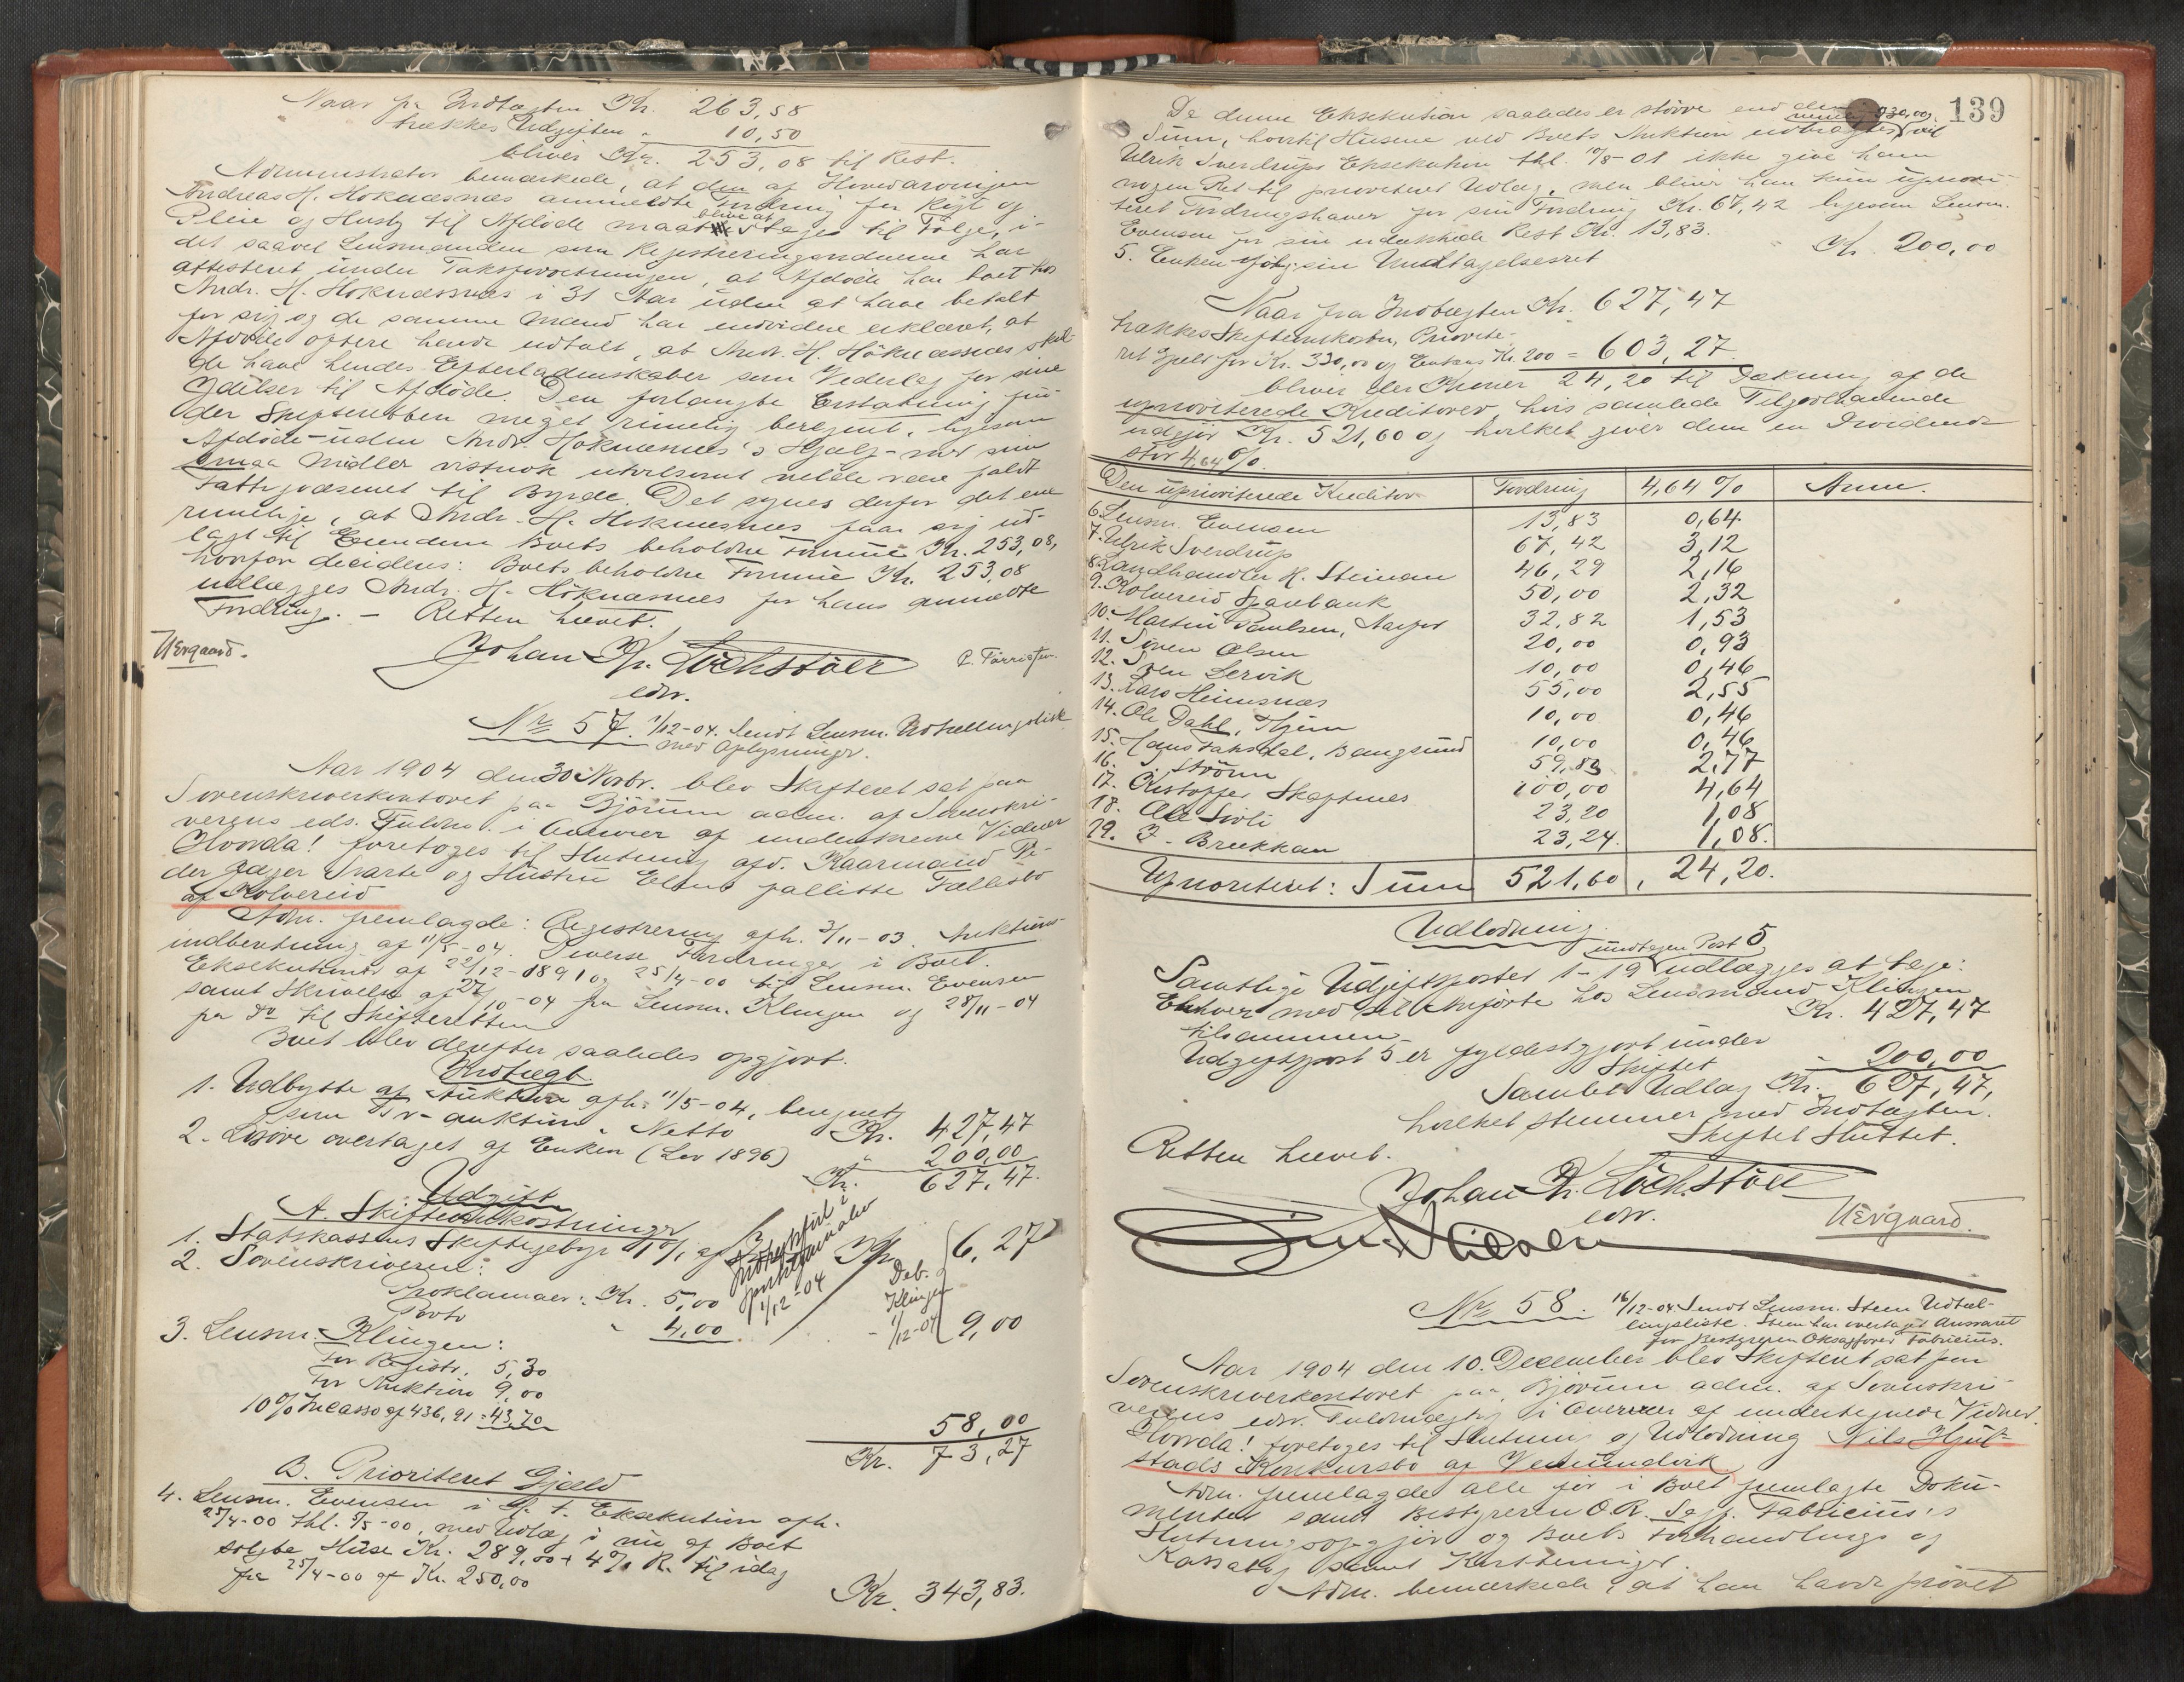 Naar fra Indtægten Kr. 263,58
trækkes Udgiften " 10,50
bliver Kr. 253,08 til Rest.
Administrator bemærkede, at den af Hovedarvingen
Andreas H. Hoknæsnæs anmeldte Fordring for Røgt og
Pleie og Husly til Afdøde maatte blive at tages til Følge, i-
det saavel Lensmanden som Registreringsvidnerne har
attesteret under Taksforretningen, at Afdøde har boet hos
Andr. H. Hoknæsnæs i 31 Aar uden at have betalt
for sig og de samme Mænd har endvidere erklæret, at
Afdøde oftere havde udtalt, at Andr. H. Høknæsnæs skul-
de have hendes Efterladenskaber som Vederlag for sine
Ydelser til Afdøde. Den forlangte Erstatning fin-
der Skifteretten meget rimelig beregnet, ligesom
Afdøde - uden Andr. Hoknæsnæs's Hjælp - med sine
smaa Midler vistnok utvilsomt vilde være faldt
Fattigvæsenet til Byrde. Det synes derfor det ene
rimelige, at Andr. H. Hoknæsnæs faar sig ud-
lagt til Eiendom Boets beholdne Formue Kr. 253,08,
hvorfor decideres: Boets beholdne Formue Kr. 253,08
udlægges Andr. H. Höknæsnæs for hans anmeldte
Fordring. - Retten hævet.
Johan Kr. Löchstöer
edsv.
Nr 57. 1/12-04. Sendt Lensm. Udtællingslisk
med Oplysninger.
Aar 1904 den 30 Novbr. blev Skifteret sat paa
Sorenskriverkontoret paa Bjørum adm. af Sorenskri-
verens eds. Fuldm. i Overvær af underskrevne Vidner
Hvorda! foretoges til Slutning afd. Kaarmand Pe-
der Jæger Svarte og Hustru Elens fallitte Fællesbo
af Kolvereid
Adm. fremlagde: Registrering afh. 3/11-03. Auktions-
indberetning af 11/5-04. Diverse Fordringer i Boet.
Eksekutioner af 22/12-1891 og 25/4-00 til Lensm. Evensen
samt Skrivelse af 27/10-04 fra Lensm. Klingen og 28/11-04
fra Do til Skifteretten
Boet blev derefter saaledes opgjort.
Indtægt
1. Udbytte af Auktion afh. 11/5-04, beregnet
som Tv-auktion - Netto Kr. 427,47
2. Løsøre overtaget af Enken (Lov 1896) " 200,00
Kr. 627,47.
Udgift
A. Skifteomkostninger
1. Statskassens Skiftegebyr 1% af Kr. 6,27
2. Sorenskriveren:
Proklamaer: Kr. 5,00
Porto " 4,00. - 9,00
1/12-04
Deb.
Klingen
1/12-04
3. Lensm. Klingen:
For Registr. 5,30
For Auktion 9,00
10% Incasso af 436,91 = 43,70
58,00
Kr. 73,27
B. Prioriteret Gjæld
4. Lensm. Evensen i H. t. Eksekution afh.
25/4-00 thl. 5/5-00, med Udlæg i nu af Boet
solgte Huse Kr. 289,00 + 4% R. til idag
fra 25/4-00 af Kr. 250,00 Kr. 343,83.
139
Da denne Eksekution saaledes er større end den
Sum, hvortil Husene ved Boets Auktion udbragtes, vil
Ulrik Sverdrups Eksekution thl. 10/8-01 ikke give ham
nogen Ret til prioriteret Udlæg, men bliver han kun upriori-
teret Fordringshaver for sin Fordring Kr. 67,42 ligesom Lensm.
Evensen for sin udækkede Rest Kr. 13,83.
5. Enken ifølge sin Undtagelsesret " Kr. 200,00
Naar fra Indtægten Kr. 627,47
trækkes Skifteomkostn, Priorite-
ret Gjæld for Kr. 330,00 og Enkens Kr. 200 = 603,27.
bliver der Kroner 24,20 til Dækning af de
uprioriterede Kreditorer, hvis samlede Tilgodehavende
udgjør Kr. 521,60 og hvilket giver dem en Dividende
stor 4,64%.
Den uprioriterede Kreditor Fordring 4,64% Anm.
6. Lensm. Evensen 13,83 0,64
7. Ulrik Sverdrup 67,42 3,12
8. Landhandler H. Steinaen 46,29 2,16
9. Kolvereid Sparebank 50,00 2,32
10. Martin Paulsen, Nærø 32,82 1,53
11. Søren Olsen 20,00 0,93
12. Lervik 10,00 0,46
13. Lars Heimsnæs 55,00 2,55
14. Ole Dahl, 10,00 0,46
15. Hans Faksdal, Bangsund 10,00 0,46
16. Strøm 59,83 2,77
17. Kristoffer Skaftnes 100,00 4,64
18. Ole Sivli 23,20 1,08
19. Brekkan 23,24. 1,08.
Uprioriteret: Sum 521,60, 24,20.
Udlodning.
Samtlige Udgiftsposter 1-19 undtagen Post 5, udlægges at tage:
Enhver med sit anførte hos Lensmand Klingen
tilsammen Kr. 427,47
Udgiftspost 5 er fyldestgjort under
Skiftet " 200,00
Samlet Udlæg Kr. 627,47,
hvilket stemmer med Indtægten.
Skiftet Sluttet.
Retten hævet.
Johan Kr. Löchstöer
edsv.
Nr 58. 16/12-04 Sendt Lensm. Steen Udtæl-
lingsliste. Steen har overtaget Ansvaret
for Bestyreren Oksagfører Fabricius.
Aar 1904 den 10. December blev Skifteret sat paa
Sorenskriverkontoret paa Bjørum adm. af Sorenskri-
verens edsv. Fuldmægtig i Overvær af undertegnede Vidner.
Hvorda! foretoges til Slutning og Udlodning Nils Hjul-
stads Konkursbo af Vemundvik.
Adm. fremlagde alle før i Boet fremlagte Doku-
menter samt Bestyreren O.R. Sagf. Fabricius's
Slutningsopgjør og Boets Forhandlings og
Kassabog samt Kvitteringer.
Adm. bemærkede, at han havde prøvet